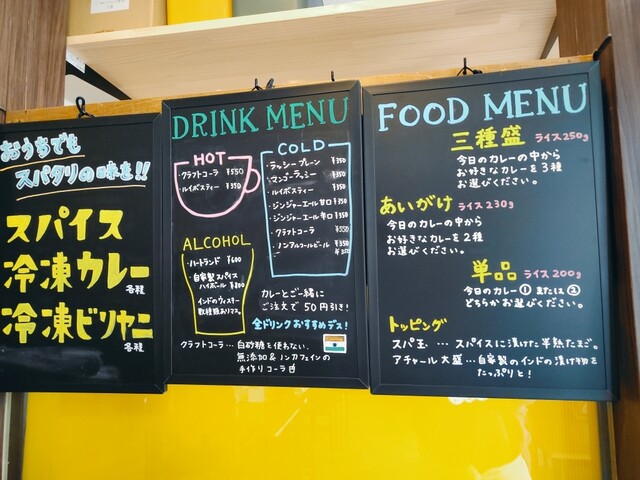 おうちでも
スパタリの味を!!
スパイス
冷凍カレー
各種
冷凍ビリヤニ
各種
DRINK MENU
HOT
・クラフトコーラ ¥550
・ルイボスティー ¥350
COLD
・ラッシー プレーン ¥350
・マンゴーラッシー ¥350
・ルイボスティー ¥350
・ジンジャーエール 甘口 ¥350
・ジンジャーエール 辛口 ¥350
・クラフトコーラ ¥550
・ノンアルコールビール ¥350
ALCOHOL
・ハートランド ¥600
・自家製スパイス
ハイボール ¥800
・インドウィスキー
数種類ありマス。
カレーとご一緒に
ご注文で50円引き!
全ドリンクおすすめデス!
クラフトコーラ…白砂糖を使わない、
無添加&ノンカフェインの
手作りコーラ
FOOD MENU
三種盛 ライス250g
今日のカレーの中から
お好きなカレーを3種
お選びください。
あいがけ ライス230g
今日のカレーの中から
お好きなカレーを2種
お選びください。
単品 ライス200g
今日のカレー①または②
どちらかお選びください。
トッピング
スパ玉…スパイスに漬けた半熟たまご。
アチャール大盛…自家製のインドの漬け物を
たっぷりと!